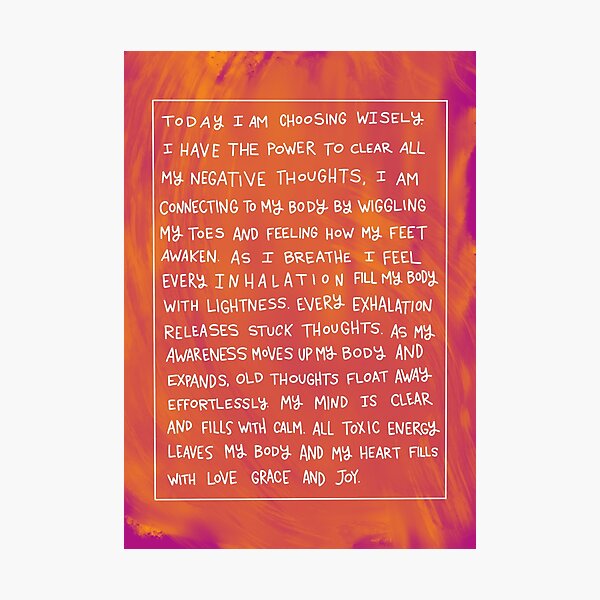 TODAY I AM CHOOSING WISELY
I HAVE THE POWER TO CLEAR ALL
MY NEGATIVE THOUGHTS, I AM
CONNECTING TO MY BODY BY WIGGLING
MY TOES AND FEELING HOW MY FEET
AWAKEN. AS I BREATHE I FEEL
EVERY INHALATION FILL MY BODY
WITH LIGHTNESS. EVERY EXHALATION
RELEASES STUCK THOUGHTS. AS MY
AWARENESS MOVES UP MY BODY AND
EXPANDS, OLD THOUGHTS FLOAT AWAY
EFFORTLESSLY. MY MIND IS CLEAR
AND FILLS WITH CALM. ALL TOXIC ENERGY
LEAVES MY BODY AND MY HEART FILLS
WITH LOVE GRACE AND JOY.